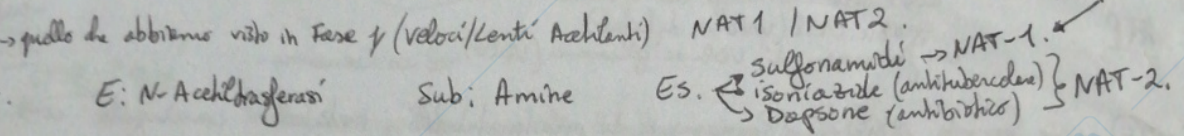 → quello che abbiamo visto in Fase 1 (Veloci/Lenti Acetilanti) NAT1 / NAT2.
E: N-Acetiltrasferasi Sub: Amine Es. sulfonamidi → NAT-1.
isoniazide (antitubercolare)
Dapsone (antibiotico) } NAT-2.